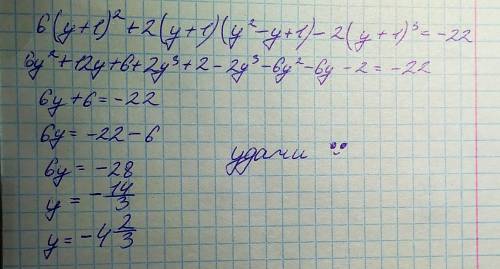 6(y+1)²+2(y+1)(y²-y+1)-2(y+1)³=-22
6y²+12y+6+2y³+2-2y³-6y²-6y-2=-22
6y+6=-22
6y=-22-6
6y=-28
y=-14/3
y=-4 2/3
удачи